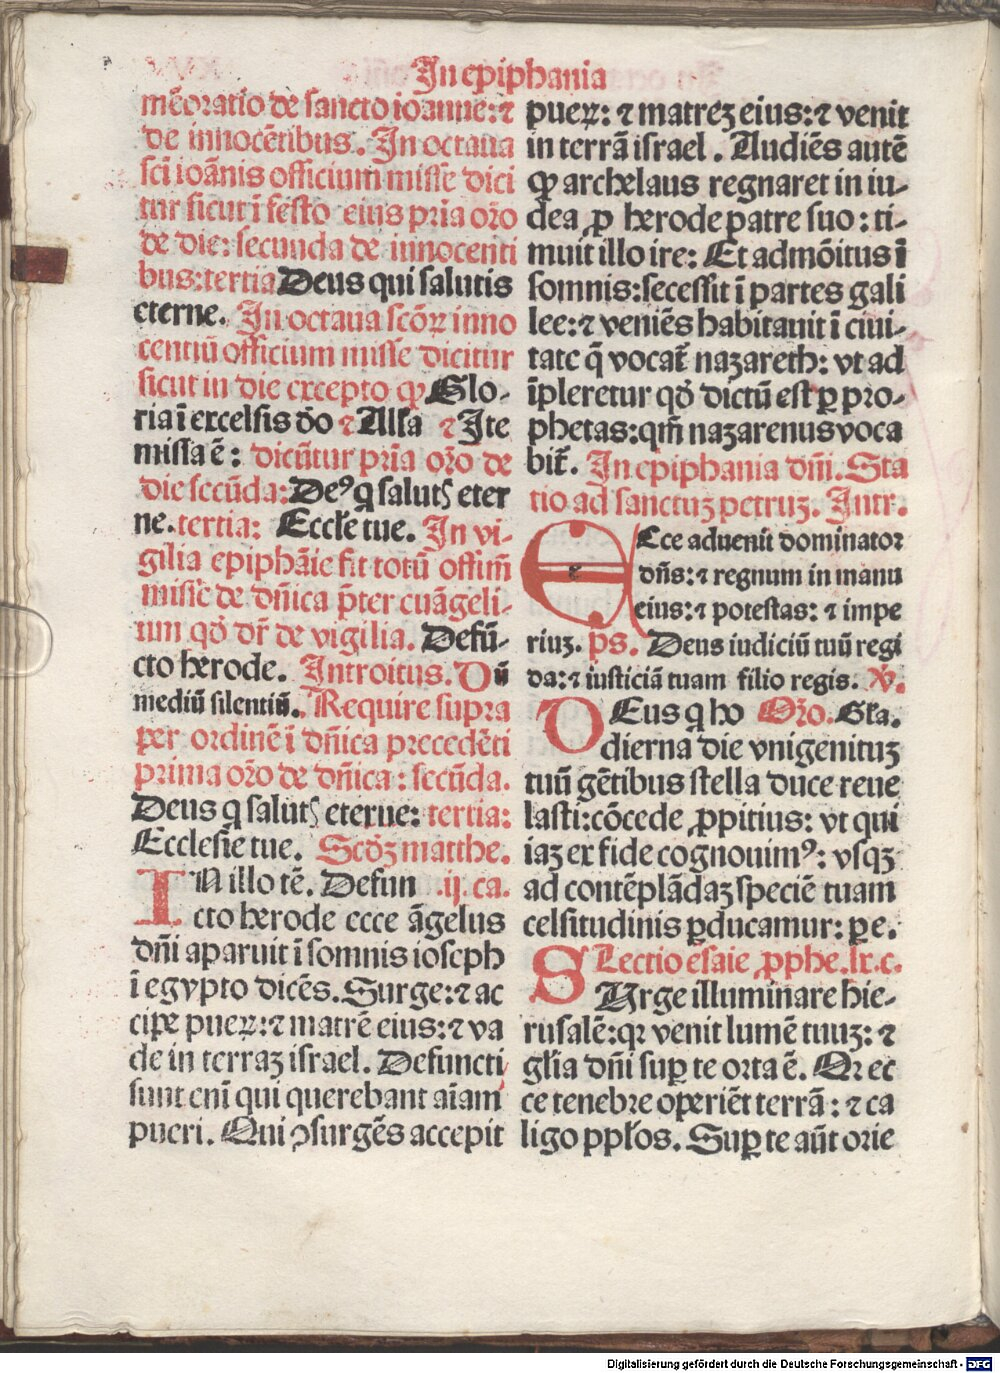 In epiphania
mēoratio de sancto ioanne: ⁊
de innocētibus. In octaua
sci ioānis officium misse dici
tur sicut ī festo eius pria oro
de die: secunda de innocenti
bus: tertia Deus qui salutis
eterne. In octaua scōꝝ inno
centiū officium misse dicitur
sicut in die excepto ꝙ Glo-
ria ī excelsis do ⁊ Alla ⁊ Ite
missa ē: dicūtur pria oro de
die secūda: Deꝰ q salutꝭ eter
ne. tertia: Eccłe tue. In vi-
gilia epiphāie fit totū offim̄
misse de dn̄ica p̄ter euāgeli-
um qd dr̄ de vigilia. Defū-
cto herode. Introitus. Dū
mediū silentiū. Require supra
per ordinē ī dn̄ica precedēti
prima oro de dn̄ica: secūda.
Deus q salutꝭ eterne: tertia:
Ecclesie tue. Scdꝫ matthe.
IN illo tē. Defun .ij. ca.
cto herode ecce āgelus
dn̄i aparuit ī somnis ioseph
ī egypto dicēs. Surge: ⁊ ac
cipe pueꝝ: ⁊ matrē eius: ⁊ va
de in terraꝫ israel. Defuncti
sunt enī qui querebant aīam
pueri. Qui ꝯsurgēs accepit
pueꝝ: ⁊ matreꝫ eius: ⁊ venit
in terrā israel. Audiēs autē
ꝙ archelaus regnaret in iu-
dea ꝓ herode patre suo: ti-
muit illo ire: Et admōitus ī
somnis: secessit ī partes gali
lee: ⁊ veniēs habitauit ī ciui-
tate q̄ vocat̄ nazareth: vt ad
īpleretur qd dictū est ꝑ pro-
phetas: qm̄ nazarenus voca
bit̄. In epiphania dn̄i. Sta
tio ad sanctuꝫ petruꝫ. Intr.
Ecce aduenit dominator
dn̄s: ⁊ regnum in manu
eius: ⁊ potestas: ⁊ impe
riuꝫ. ps. Deus iudiciū tuū regi
da: ⁊ iusticiā tuam filio regis. V.
DEus q ho Oro. Gła.
dierna die vnigenituꝫ
tuū gētibus stella duce reue
lasti: cōcede ꝓpitius: vt qui
iaꝫ ex fide cognouimꝰ: vsqꝫ
ad contēplādaꝫ speciē tuam
celsitudinis ꝑducamur: ꝑ e.
Lectio esaie ꝓphe. lx. c.
SUrge illuminare hie-
rusalē: qꝛ venit lumē tuuꝫ: ⁊
głia dn̄i suꝑ te orta ē. Qꝛ ec
ce tenebre operiēt terrā: ⁊ ca
ligo ppłos. Suꝑ te aūt orie
Digitalisierung gefördert durch die Deutsche Forschungsgemeinschaft - DFG